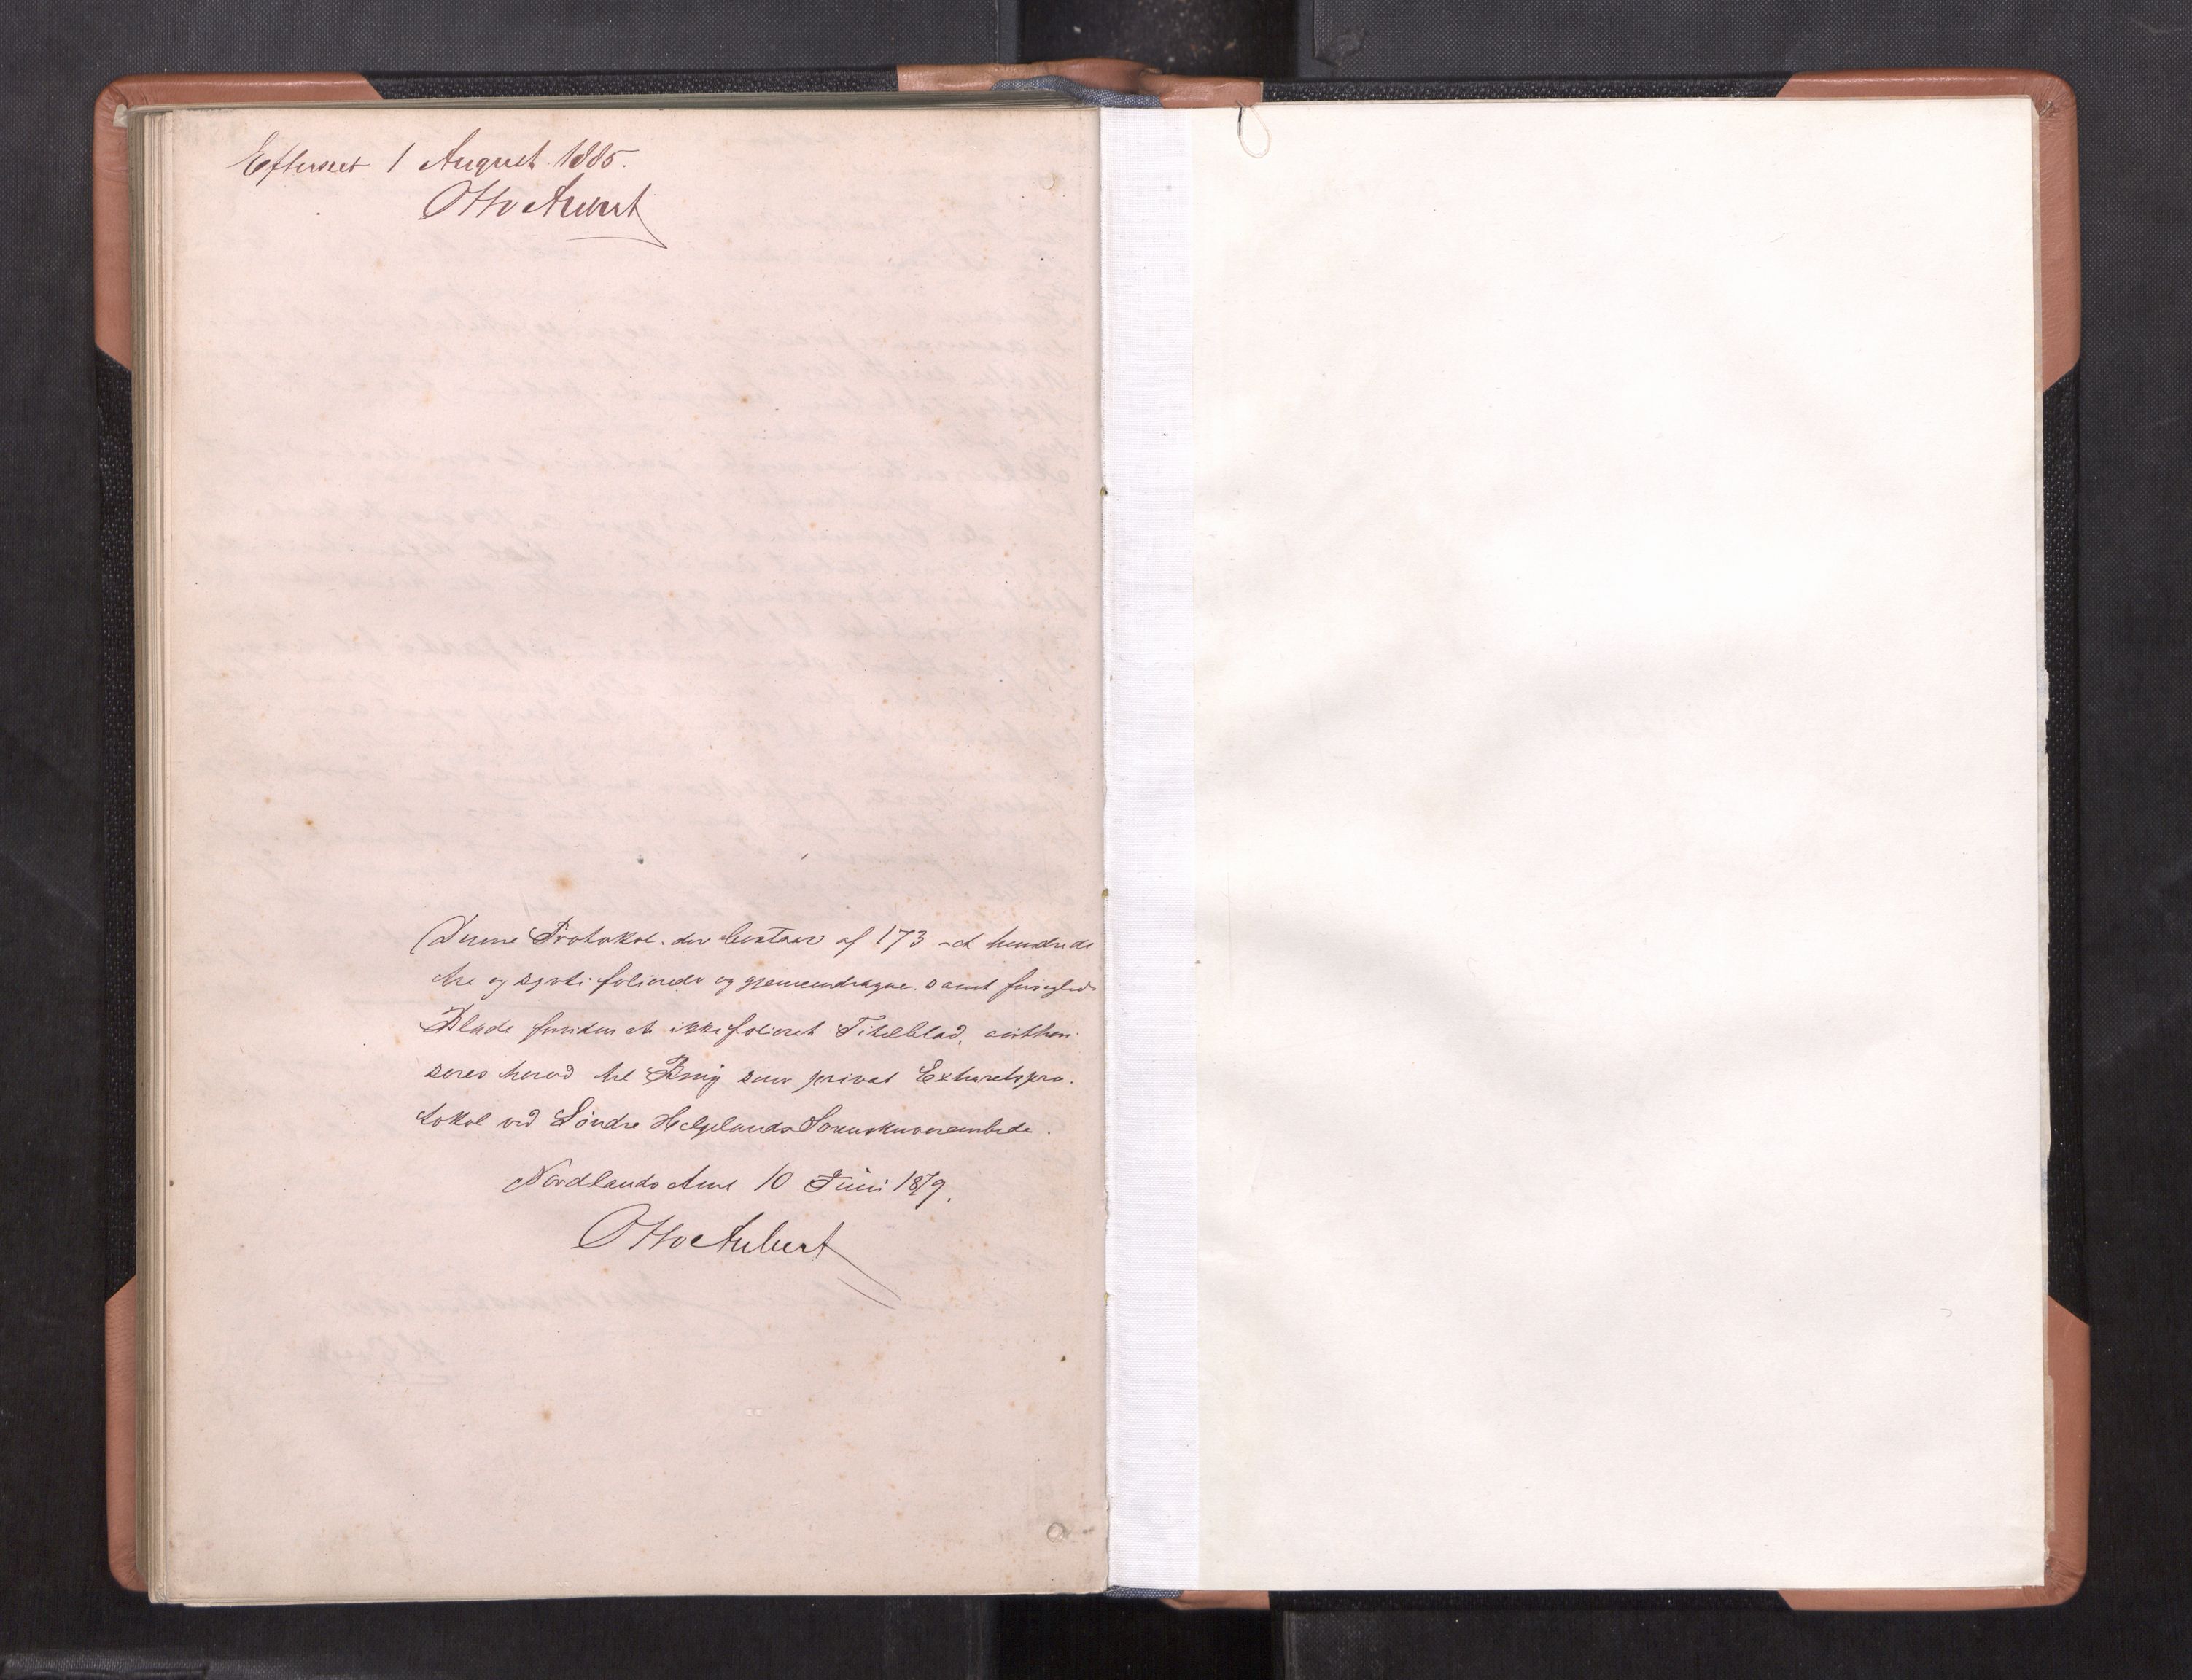 Efterseet 1 August 1885.
Otto Aubert
Denne Protokol, der bestaar af 173 - et hundrede
tre og sytti folierede og gjennemdragne samt forseglede
Blade foruden et ikke folieret Titelblad, authori-
seres herved til Brug som privat Extraretspro-
tokol ved Söndre Helgelands Sorenskriverembede.
Nordlands Amt 10 Juni 1879.
Otto Aubert